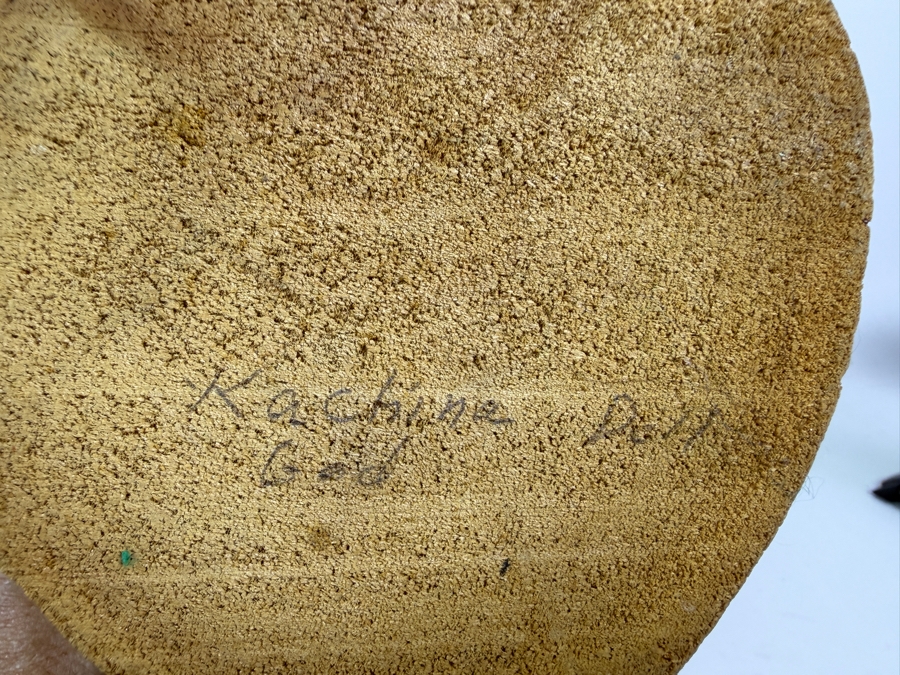 Kachine Doll
God